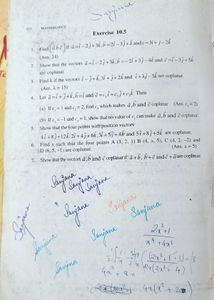 Sanjana
MATHEMATICS
Exercise 10.5
1. Find [a⃗ b⃗ c⃗] if a⃗ = î – 2ĵ + 3k̂, b⃗ = 2î – 3ĵ + k̂ and c⃗ = 3î + ĵ – 2k̂
(Ans. 24)
2. Show that the vectors a⃗ = î – 2ĵ + 3k̂, b⃗ = – 2î + 3ĵ – 4k̂ and c⃗ = î – 3ĵ + 5k̂
are coplanar.
3. Find λ if the vectors î – ĵ + k̂, 3î + ĵ + 2k̂ and î + λĵ – 3k̂ are coplanar.
(Ans. λ = 15)
4. Let a⃗ = î + ĵ + k̂, b⃗ = î and c⃗ = c₁î + c₂ĵ + c₃k̂ Then
(a) If c₁ = 1 and c₂ = 2, find c₃ which makes a⃗, b⃗ and c⃗ coplanar (Ans. c₃ = 2)
(b) If c₂ = –1 and c₃ = 1, show that no value of c₁ can make a⃗, b⃗ and c⃗ coplanar.
5. Show that the four points with position vectors
4î + 8ĵ + 12k̂, 2î + 4ĵ + 6k̂, 3î + 5ĵ + 4k̂ and 5î + 8ĵ + 5k̂ are coplanar.
6. Find x such that the four points A (3, 2, 1) B (4, x, 5), C (4, 2, –2) and
D (6, 5, –1) are coplanar. (Ans. x = 5)
7. Show that the vectors a⃗, b⃗ and c⃗ coplanar if a⃗ + b⃗, b⃗ + c⃗ and c⃗ + a⃗ are coplanar.
Sanjana
Sanjana
Sanjana
Sanjana
Sanjana
Sanjana
Sanjana
Sanjana
Sanjana
Sanjana